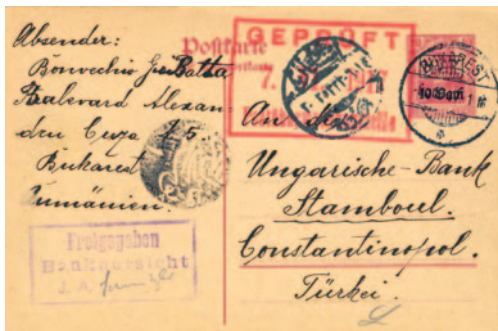 Absender:
Bonvechio Gio Batta
Boulevard Alexan
dru Cuza 75.
Bukarest
Rumänien.
Freigegeben
Bankaufsicht
J. A.
Postkarte
GEPRÜFT
7.
BUKAREST
An die
Ungarische-Bank
Stamboul.
Constantinopol.
Türkei.